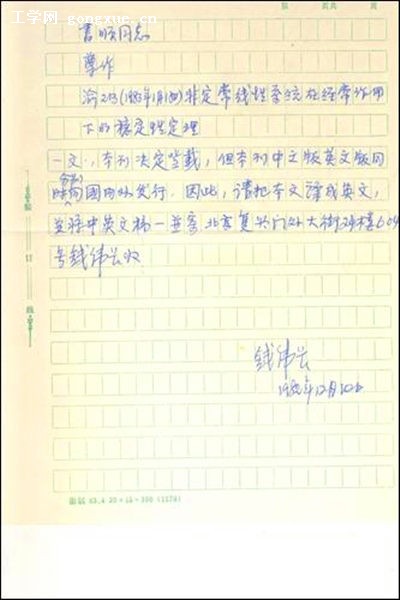 工学网 gongxue.cn
同志
尊作
渝203(1983年1月18日)非定常线性系统在经常作用
下的稳定性定理
一文,本刊决定登载,但本刊中文版英文版同
分别
时向國内外发行,因此,请把本文譯成英文,
并将中英文稿一并寄北京复兴门外大街24楼604
号钱伟长收
钱伟长
12月
83.4 20×15=300 (1578)